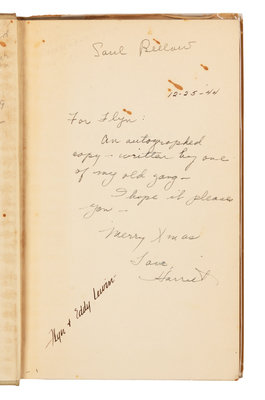 Saul Bellow
12-25-44
For Flyn:
An autographed
copy - written by one
of my old gang -
I hope it please
you -
Merry Xmas
Love,
Harriet
Flyn & Eddy Lewin